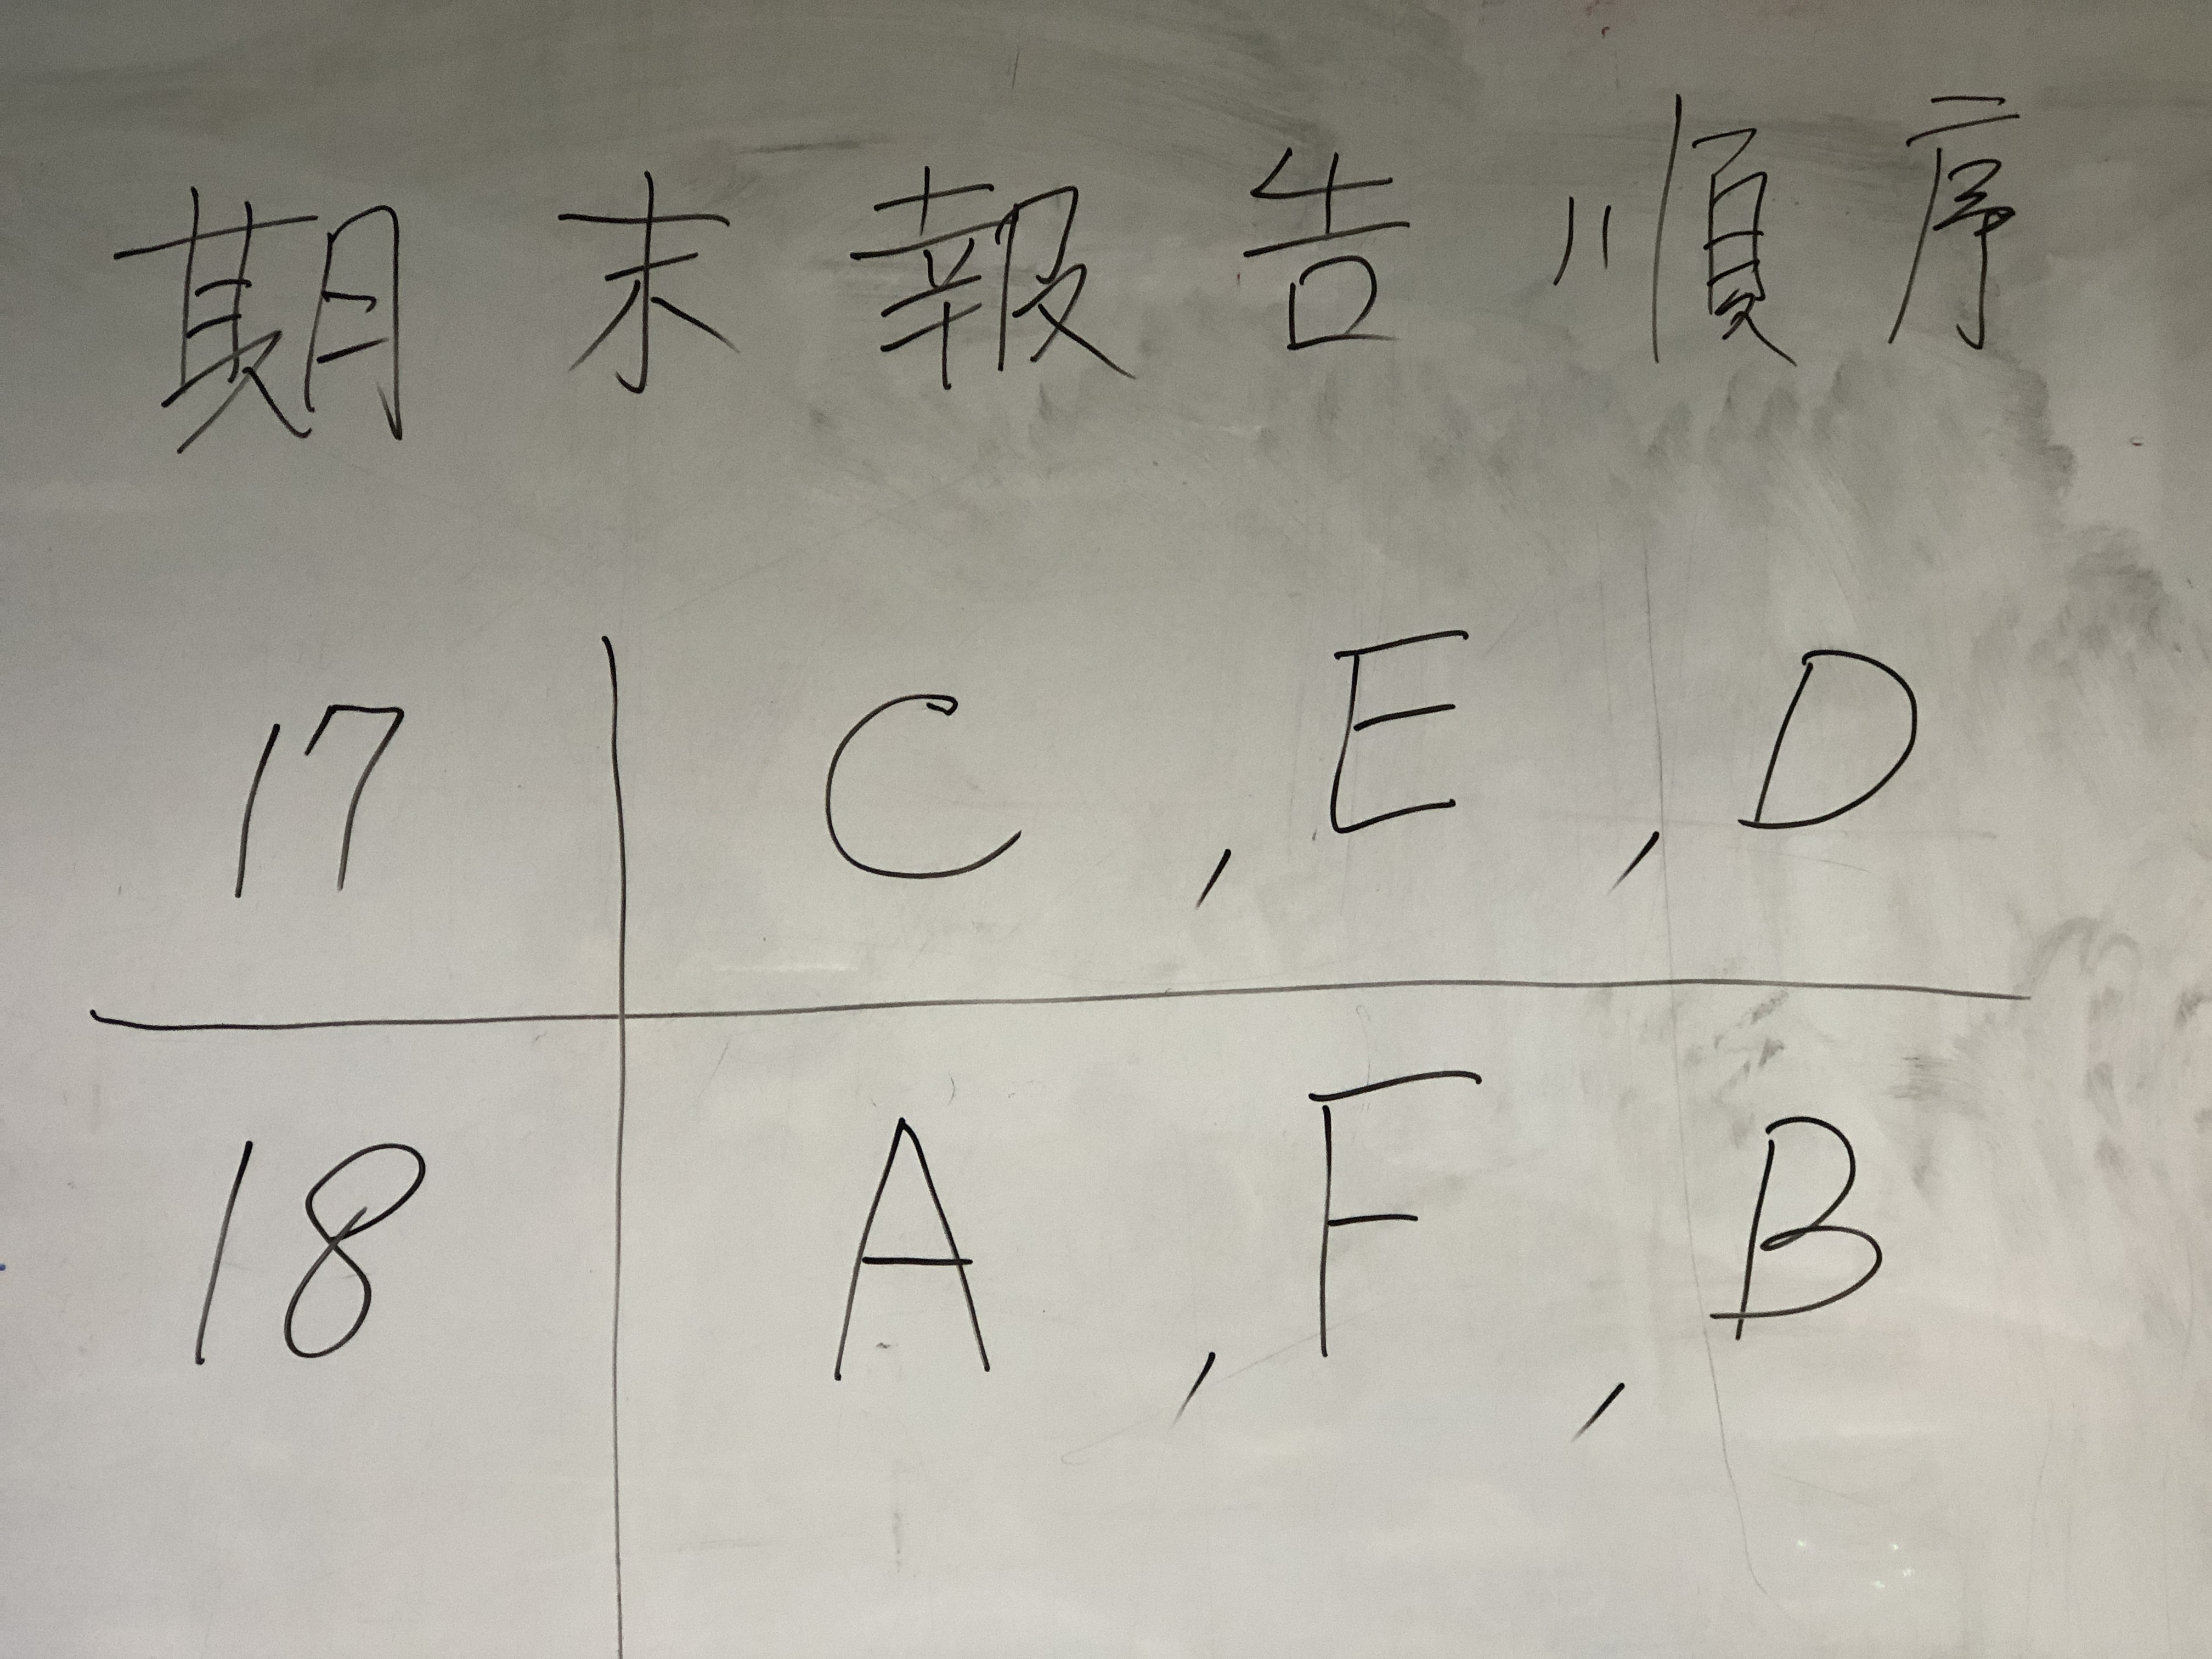 期末報告順序
17 C, E, D
18 A, F, B